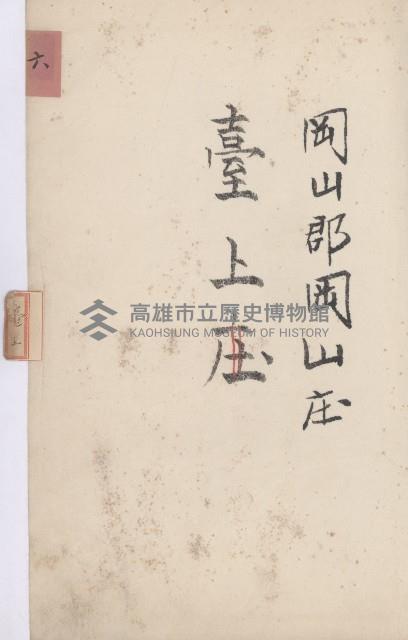 岡山郡岡山庄
臺上庄
六
臺上
高雄市立歷史博物館
KAOHSIUNG MUSEUM OF HISTORY